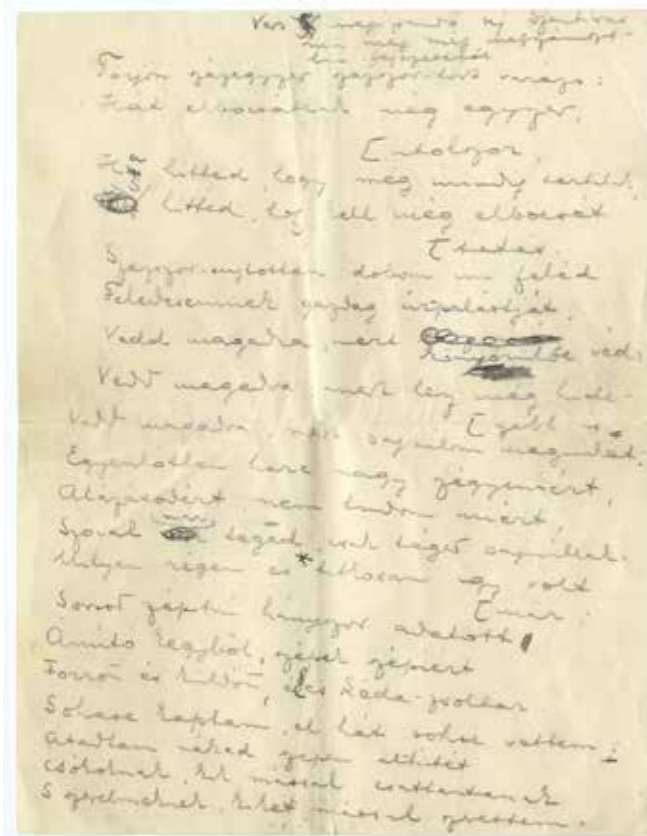 Törjön százegyszer százszor-tört varázs:
Hát elbocsátlak még egyszer,
[utolszor,
Ha hitted, hogy még mindig tartalak,
hitted, hogy kell még elbocsát-
[tatás.
Százszor-sujtottan dobom im feléd
Feledésemnek gazdag úr-palástját.
Vedd magadra, mert
Vedd magadra mert lesz még hide-
[gebb is,
Vedd magadra, mert sajnálom magunkat,
Egyenlőtlen harc nagy szégyeniért,
Alázásodért, nem tudom miért,
Szóval téged, csak téged sajnállak.
Milyen régen és titkosan így volt
[már:
Sorsod szépitni hányszor adatott
Ámitó kegyből, szépek szépiért
Forrón és küldött, Léda-zsoltár
Sohase kaptam, el hát sohse vettem:
Átadtam néked szépen álhitét
Csókoknak, kik mással csattantanak
S szerelmeket, kiket mással szerettem.